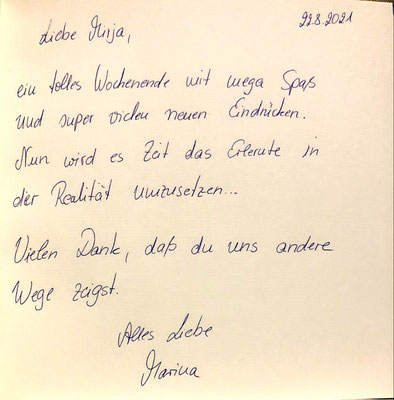 22.8.2021
Liebe Mirja,
ein tolles Wochenende mit mega Spaß
und super vielen neuen Eindrücken.
Nun wird es Zeit das Erlernte in
der Realität umzusetzen...
Vielen Dank, daß du uns andere
Wege zeigst.
Alles Liebe
Marina